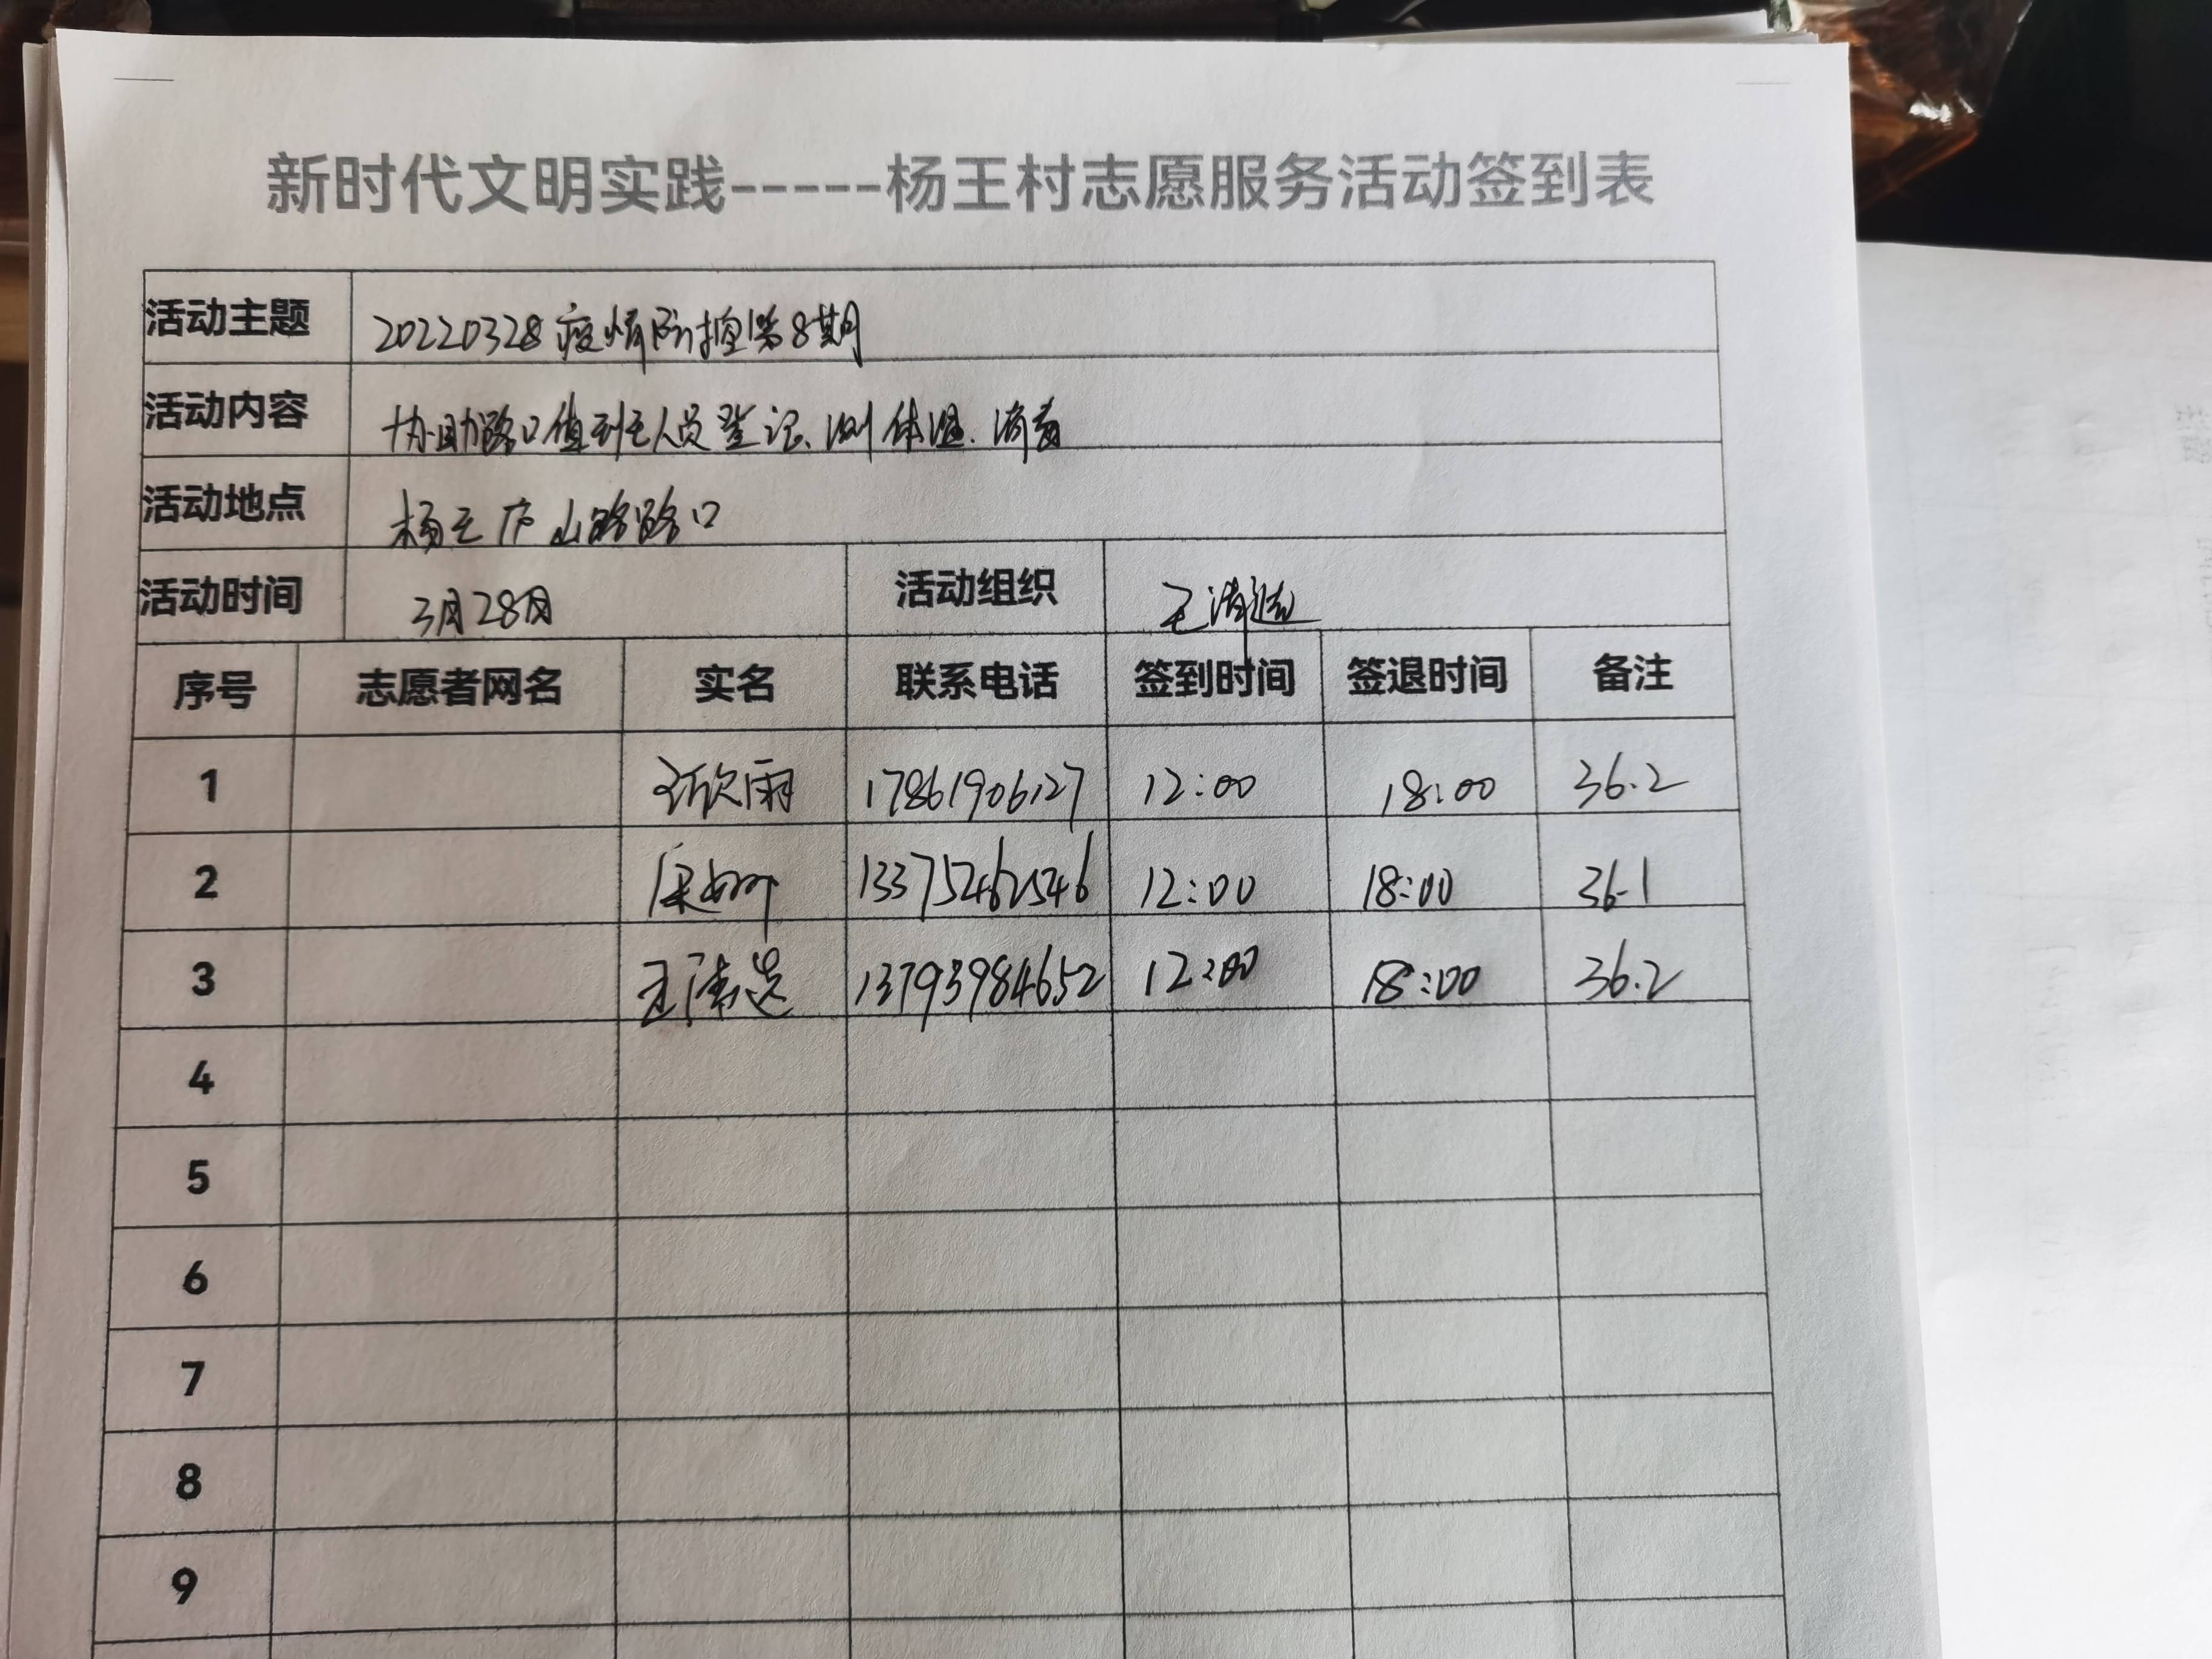 新时代文明实践-----杨王村志愿服务活动签到表
活动主题 20220328疫情防控第8期
活动内容 协助路口值班人员登记、测体温、消毒
活动地点 杨王庐山路路口
活动时间 3月28日 活动组织 王清
序号 志愿者网名 实名 联系电话 签到时间 签退时间 备注
1 欣雨 17861906127 12:00 18:00 36.2
2 13375462546 12:00 18:00 36.1
3 王 13793984652 12:00 18:00 36.2
4
5
6
7
8
9